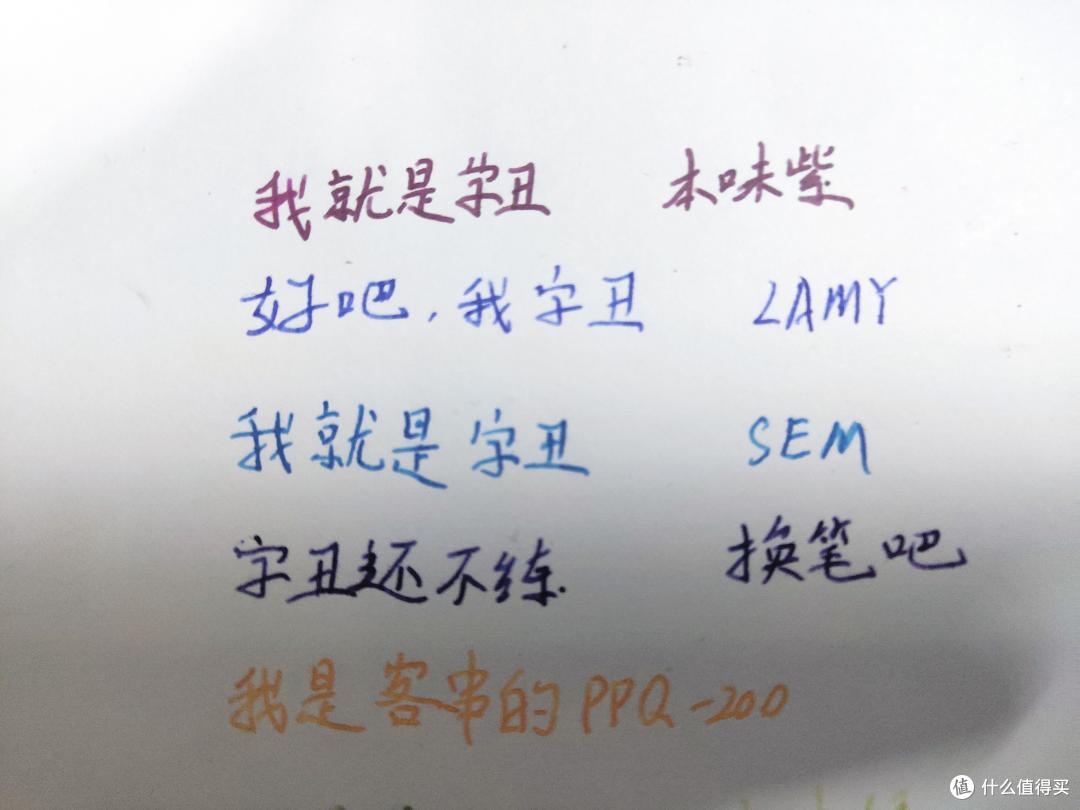 我就是字丑 本味紫
好吧，我字丑 LAMY
我就是字丑 SEM
字丑还不练. 换笔吧
我是客串的PPQ-200
值 什么值得买